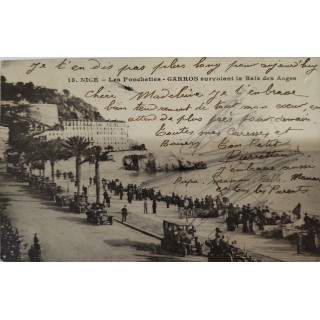 Je t'en dis pas plus long pour aujourd'huy
13. NICE - Les Ponchettes - GARROS survolant la Baie des Anges
Chère Madeleine je t'embrasse
bien tendrement de tout mon cœur, en
attendant de plus près pour demain.
Toutes mes Caresses et
Baisers Ton Petit
Pierrot
J'embrasse aussi
Papa, Maman
et tous les Parents